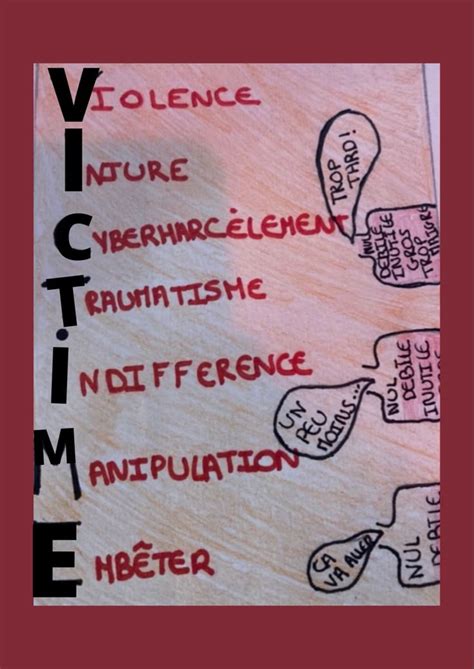 VIOLENCE
INJURE
CYBERHARCÈLEMENT
TRAUMATISME
INDIFFERENCE
MANIPULATION
EMBÊTER
TROP
TARD!
NUL
DEBILE
INUTILE
GROS
TROP
UN
PEU
MOINS...
NUL
DEBILE
INUTILE
ÇA
VA ALLER
NUL
DEBILE